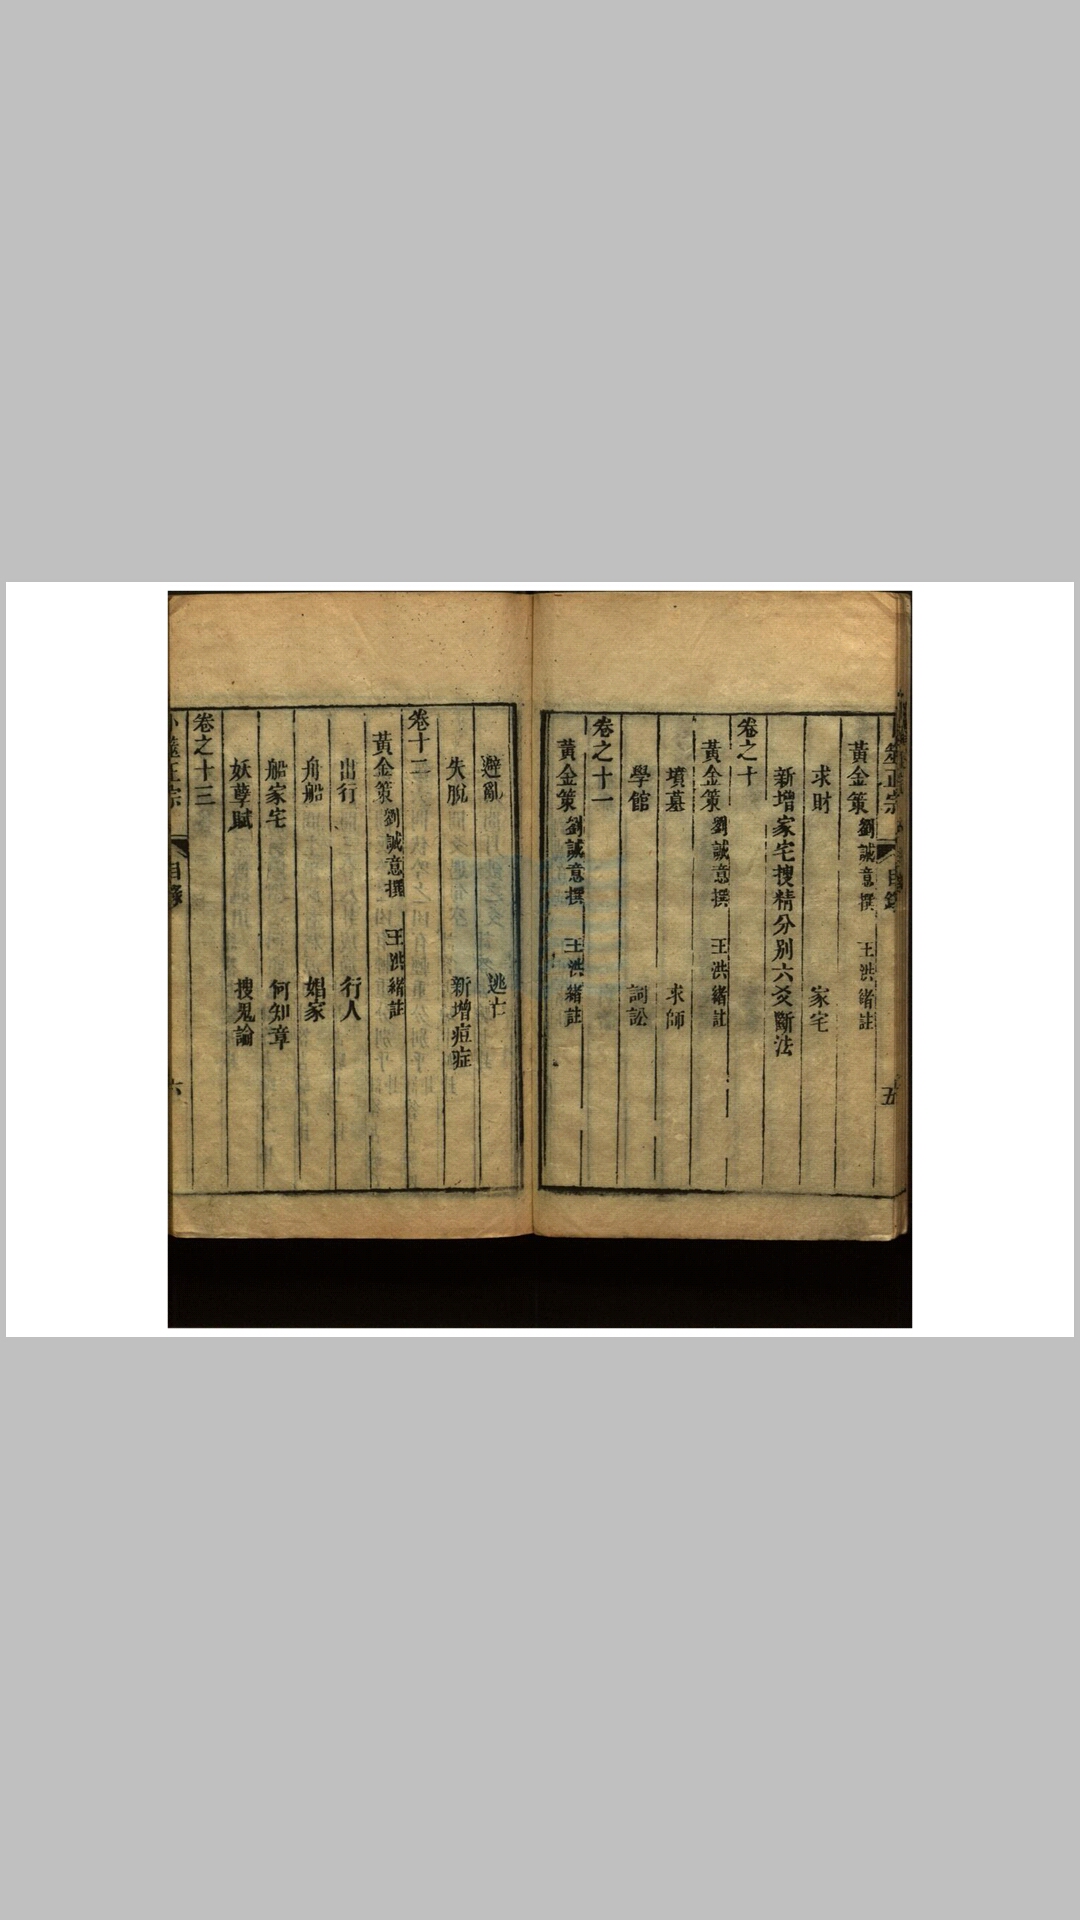 筮正宗 目錄 五
黃金策 劉誠意撰 王洪緒註
求財 家宅
新增家宅搜精分別六爻斷法
卷之十
黃金策 劉誠意撰 王洪緒註
墳墓 求師
學館 詞訟
卷之十一
黃金策 劉誠意撰 王洪緒註
避亂 逃亡
失脫 新增痘症
卷十二
黃金策 劉誠意撰 王洪緒註
出行 行人
舟船 娼家
船家宅 何知章
妖孽賦 搜鬼論
卷之十三
卜筮正宗 目錄 六